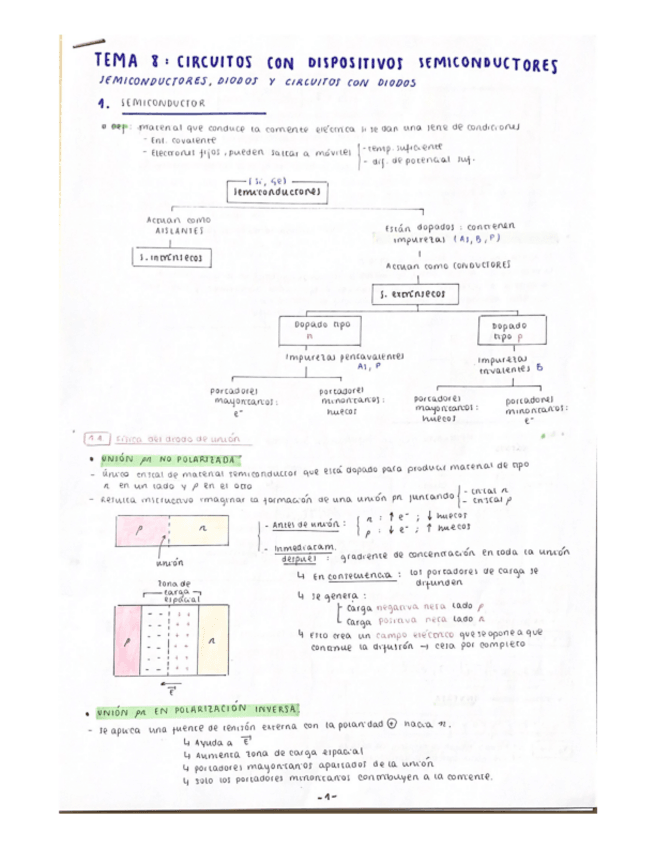 TEMA 8: CIRCUITOS CON DISPOSITIVOS SEMICONDUCTORES
SEMICONDUCTORES, DIODOS Y CIRCUITOS CON DIODOS
1. SEMICONDUCTOR
DEF: material que conduce la corriente eléctrica si se dan una serie de condiciones
- Enl. covalente
- Electrones fijos, pueden saltar a móviles
- temp. suficiente
- dif. de potencial suf.
(Si, Ge)
semiconductores
Actúan como
AISLANTES
S. intrínsecos
Están dopados: contienen
impurezas (As, B, P)
Actúan como CONDUCTORES
S. extrínsecos
Dopado tipo
n
Dopado
tipo p
Impurezas pentavalentes
As, P
Impurezas
trivalentes B
portadores
mayoritarios:
e⁻
portadores
minoritarios:
huecos
portadores
mayoritarios:
huecos
portadores
minoritarios:
e⁻
1.1 Física del diodo de unión
• UNIÓN pn NO POLARIZADA
- Único cristal de material semiconductor que está dopado para producir material de tipo
n en un lado y p en el otro
- Resulta instructivo imaginar la formación de una unión pn juntando
- cristal n
- cristal p
p n
unión
- Antes de unión:
n: ↑ e⁻ ; ↓ huecos
p: ↓ e⁻ ; ↑ huecos
- Inmediatam.
después: gradiente de concentración en toda la unión
↳ En consecuencia: los portadores de carga se
difunden
↳ Se genera:
Carga negativa neta lado p
Carga positiva neta lado n
↳ Esto crea un campo eléctrico que se opone a que
continúe la difusión → cesa por completo
Zona de
carga
espacial
p n
E
• UNIÓN pn EN POLARIZACIÓN INVERSA
- Se aplica una fuente de tensión externa con la polaridad ⊕ hacia n.
↳ Ayuda a E
↳ Aumenta zona de carga espacial
↳ portadores mayoritarios apartados de la unión
↳ solo los portadores minoritarios contribuyen a la corriente.
-1-